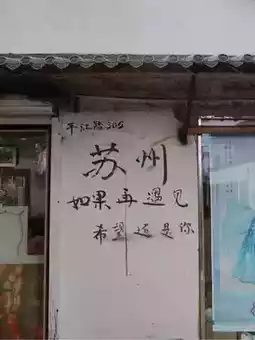 平江路305
苏州
如果再遇见
希望还是你